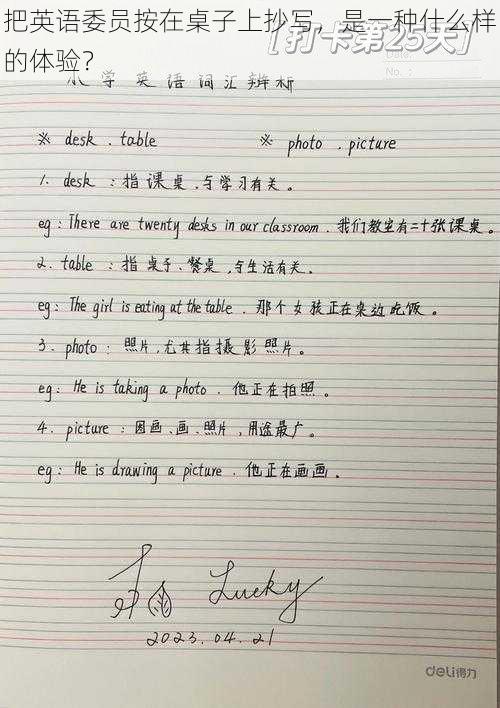 把英语委员按在桌子上抄写，是一种什么样
的体验？
[打卡第25天]
Date:
No.:
小学英语词汇辨析
※ desk . table ※ photo . picture
1. desk : 指课桌，与学习有关。
eg : There are twenty desks in our classroom . 我们教室有二十张课桌。
2. table : 指桌子、餐桌，与生活有关。
eg : The girl is eating at the table . 那个女孩正在桌边吃饭。
3. photo : 照片，尤其指摄影照片。
eg : He is taking a photo . 他正在拍照。
4. picture : 图画、画、照片，用途最广。
eg : He is drawing a picture . 他正在画画。
雨 Lucky
2023.04.21
deli得力